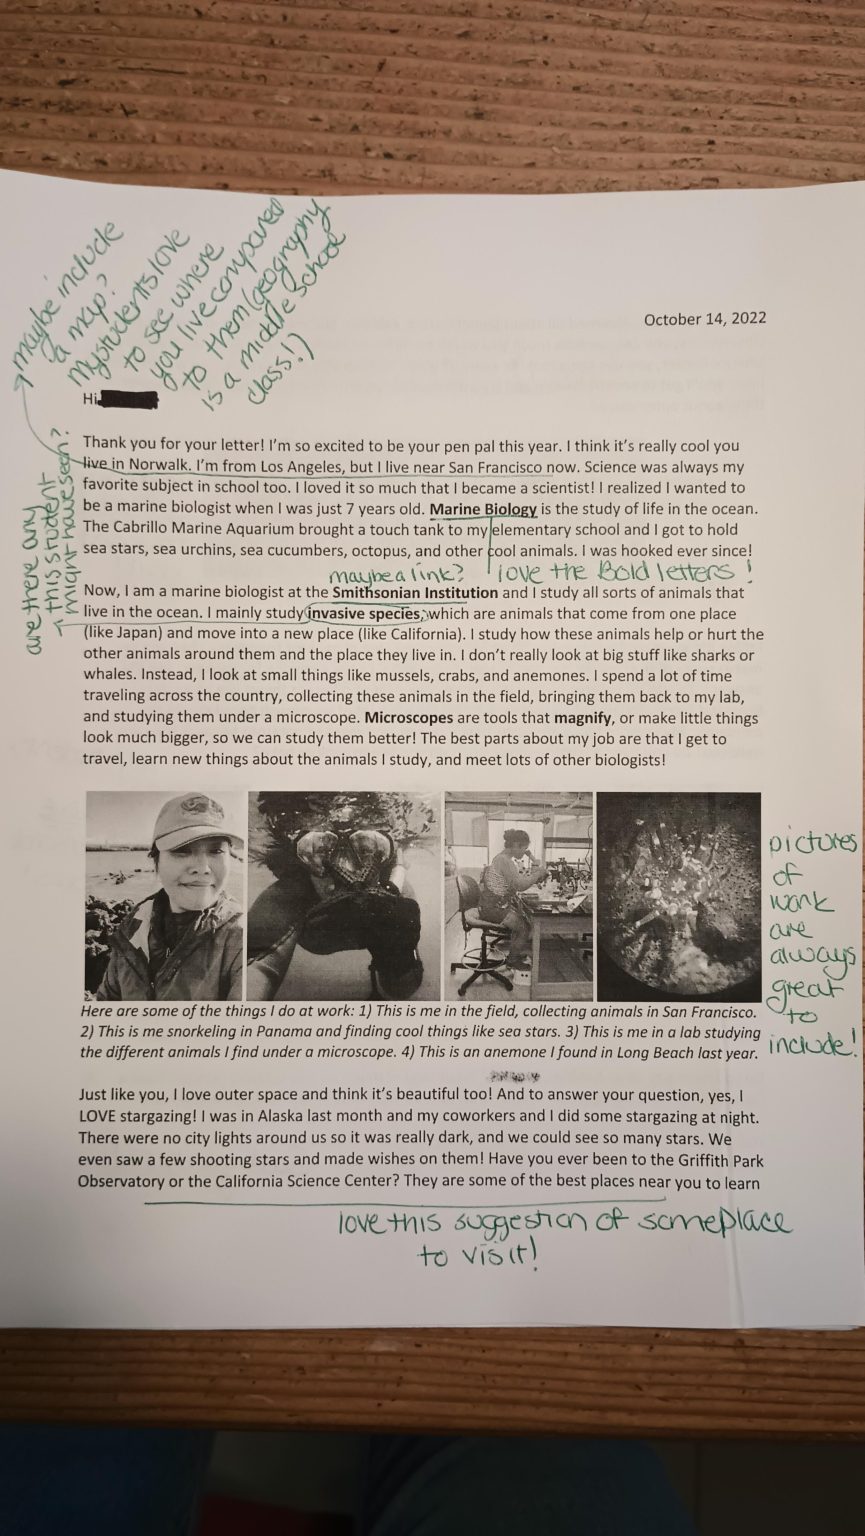 maybe include
a map?
my students love
to see where
you live compared
to them (geography
is a middle school
class!)
October 14, 2022
Hi
Thank you for your letter! I'm so excited to be your pen pal this year. I think it's really cool you
live in Norwalk. I'm from Los Angeles, but I live near San Francisco now. Science was always my
favorite subject in school too. I loved it so much that I became a scientist! I realized I wanted to
be a marine biologist when I was just 7 years old. Marine Biology is the study of life in the ocean.
The Cabrillo Marine Aquarium brought a touch tank to my elementary school and I got to hold
sea stars, sea urchins, sea cucumbers, octopus, and other cool animals. I was hooked ever since!
are there any
this student
might have seen?
maybe a link?
love the Bold letters!
Now, I am a marine biologist at the Smithsonian Institution and I study all sorts of animals that
live in the ocean. I mainly study invasive species, which are animals that come from one place
(like Japan) and move into a new place (like California). I study how these animals help or hurt the
other animals around them and the place they live in. I don't really look at big stuff like sharks or
whales. Instead, I look at small things like mussels, crabs, and anemones. I spend a lot of time
traveling across the country, collecting these animals in the field, bringing them back to my lab,
and studying them under a microscope. Microscopes are tools that magnify, or make little things
look much bigger, so we can study them better! The best parts about my job are that I get to
travel, learn new things about the animals I study, and meet lots of other biologists!
pictures
of
work
are
always
great
to
include!
Here are some of the things I do at work: 1) This is me in the field, collecting animals in San Francisco.
2) This is me snorkeling in Panama and finding cool things like sea stars. 3) This is me in a lab studying
the different animals I find under a microscope. 4) This is an anemone I found in Long Beach last year.
Just like you, I love outer space and think it's beautiful too! And to answer your question, yes, I
LOVE stargazing! I was in Alaska last month and my coworkers and I did some stargazing at night.
There were no city lights around us so it was really dark, and we could see so many stars. We
even saw a few shooting stars and made wishes on them! Have you ever been to the Griffith Park
Observatory or the California Science Center? They are some of the best places near you to learn
love this suggestion of someplace
to visit!